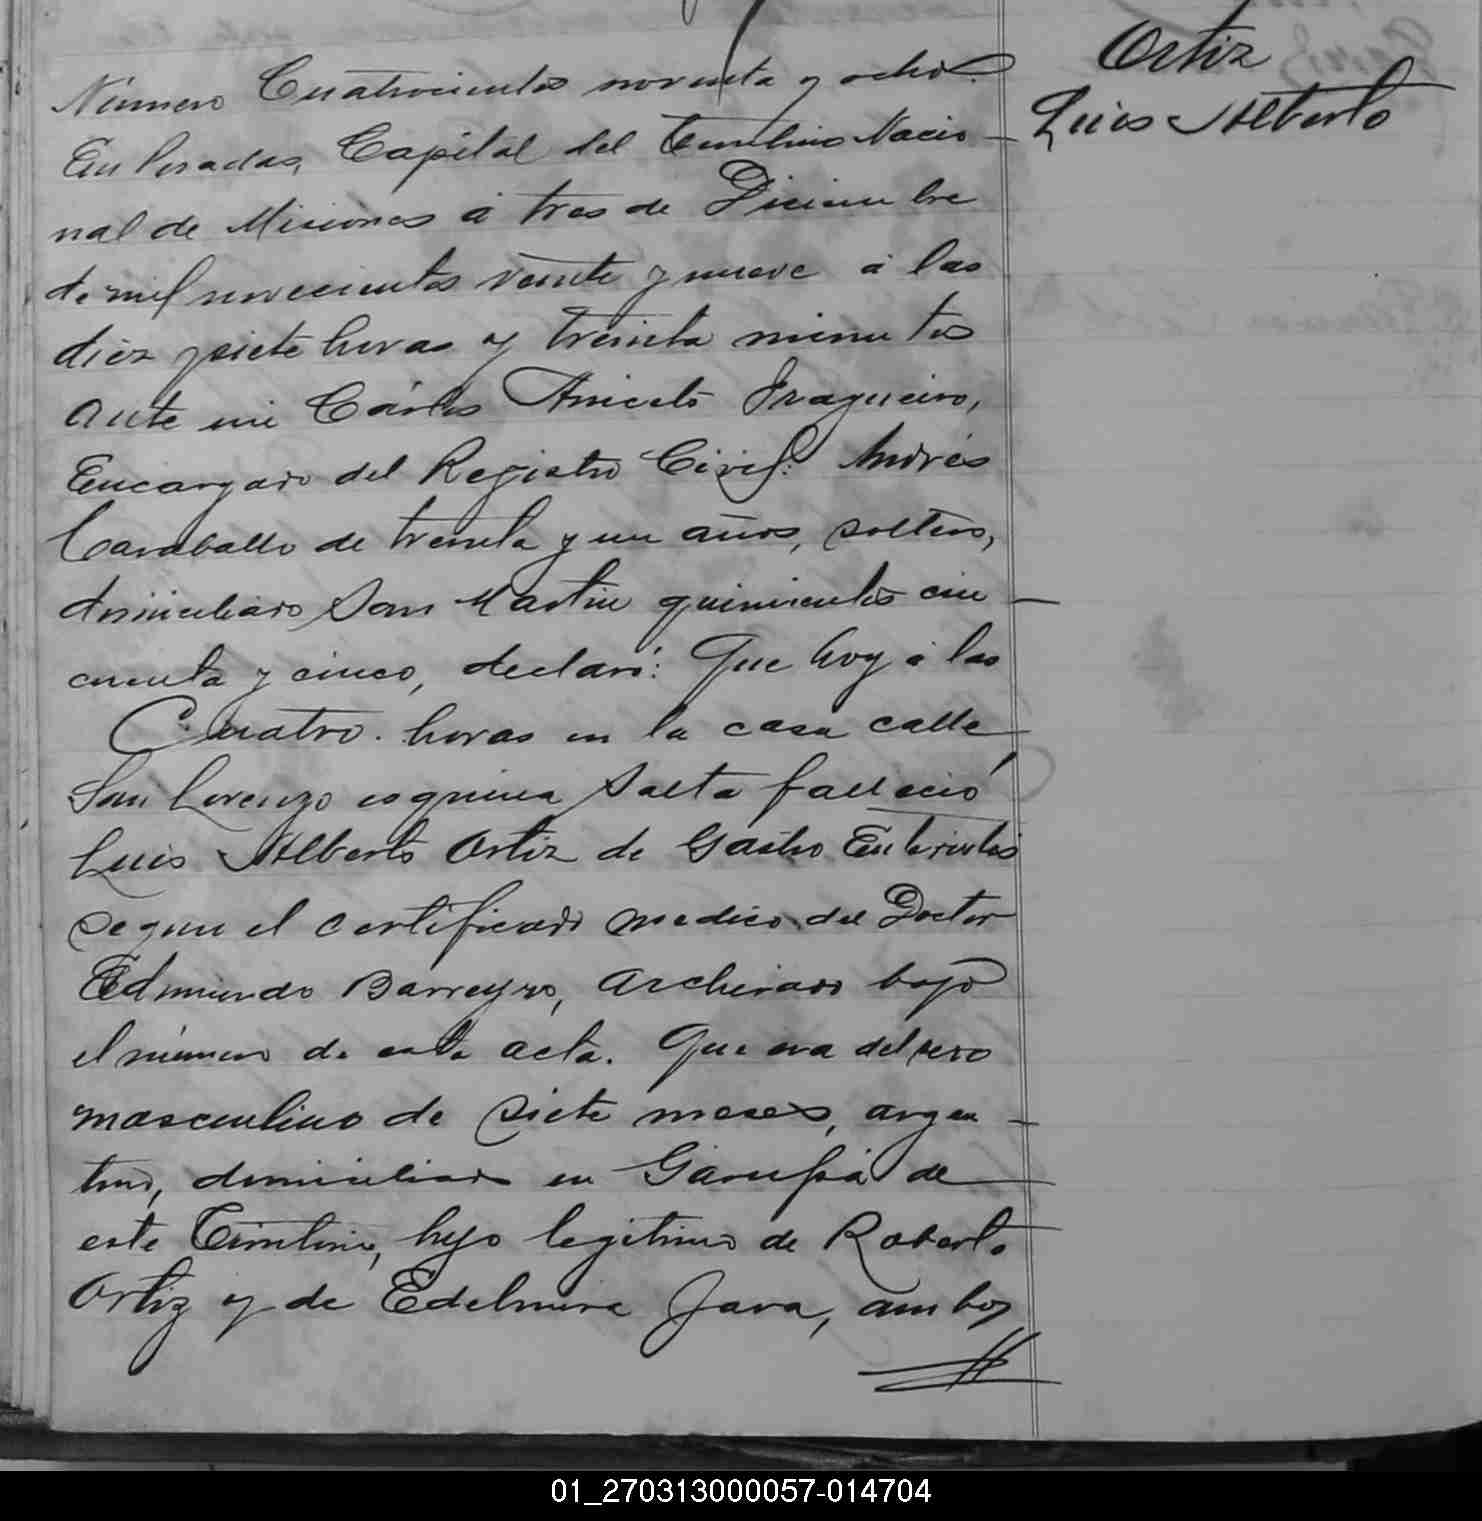 Número Cuatrocientos noventa y ocho.
En Posadas, Capital del Territorio Nacio-
nal de Misiones á tres de Diciembre
de mil novecientos veinte y nueve á las
diez y siete horas y treinta minutos
ante mi Cárlos Aniceto Fragueiro,
Encargado del Registro Civil: Andrés
Caraballo de treinta y un años, soltero,
domiciliado San Martin quinientos cin-
cuenta y cinco, declaró: Que hoy á las
Cuatro. horas en la casa calle
San Lorenzo esquina Salta falleció
Luis Alberto Ortiz de Gastro Enteritis
segun el certificado medico del Doctor
Edmundo Barreyro, archivado bajo
el número de esta acta. Que era del sexo
masculino de siete meses, argen-
tino, domiciliado en Garupá de
este Territorio, hijo legitimo de Roberto
Ortiz y de Edelmira Jara, ambos
Ortiz
Luis Alberto
01_270313000057-014704